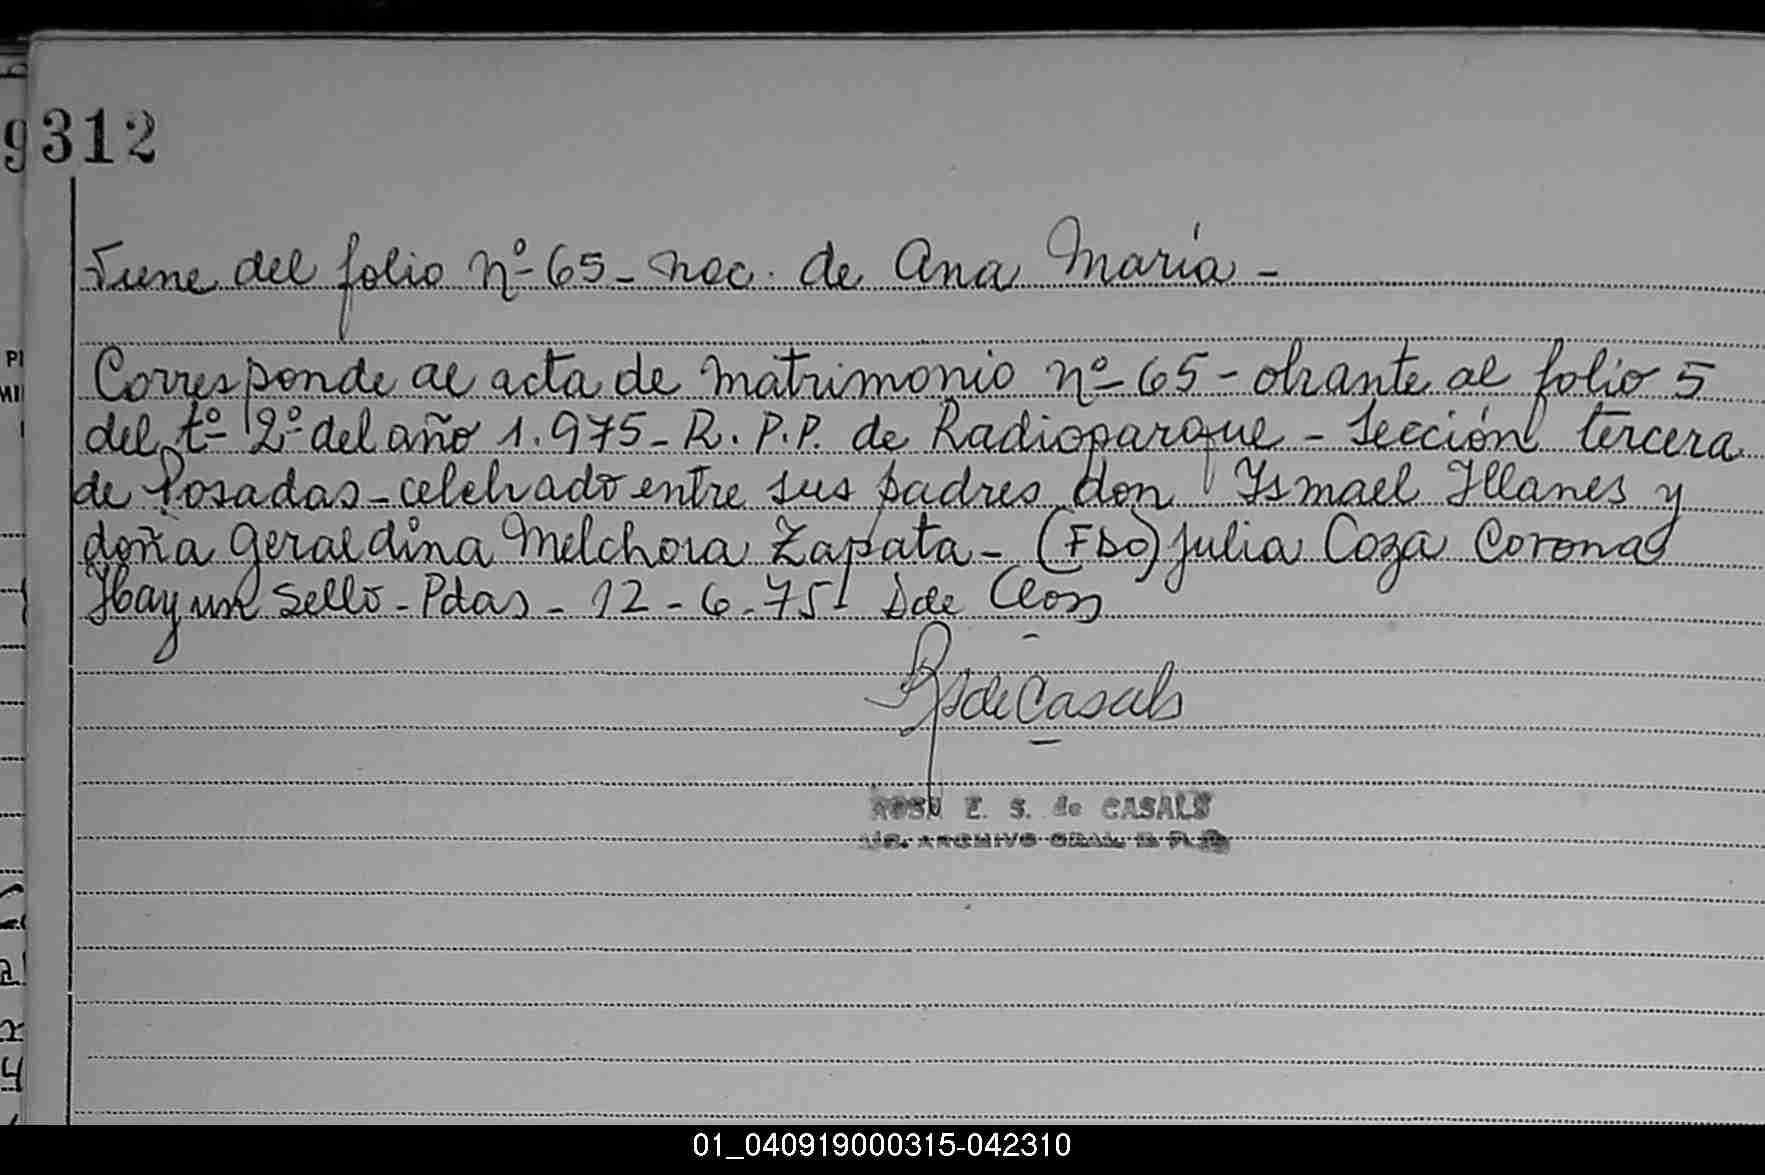 312
Viene del folio nº 65 - nac. de Ana María -
Corresponde al acta de matrimonio nº 65 - obrante al folio 5
del tº 2º del año 1.975 - R.P.P. de Radioparque - Sección tercera
de Posadas - celebrado entre sus padres don Ismael Illanes y
doña Geraldina Melchora Zapata - (Fdo) Julia Coza Coronas
Hay un sello - Pdas - 12 - 6 - 75 -
de Casals
ROSA E. S. de CASALS
ARCHIVO GRAL. R. P. P.
01_040919000315-042310